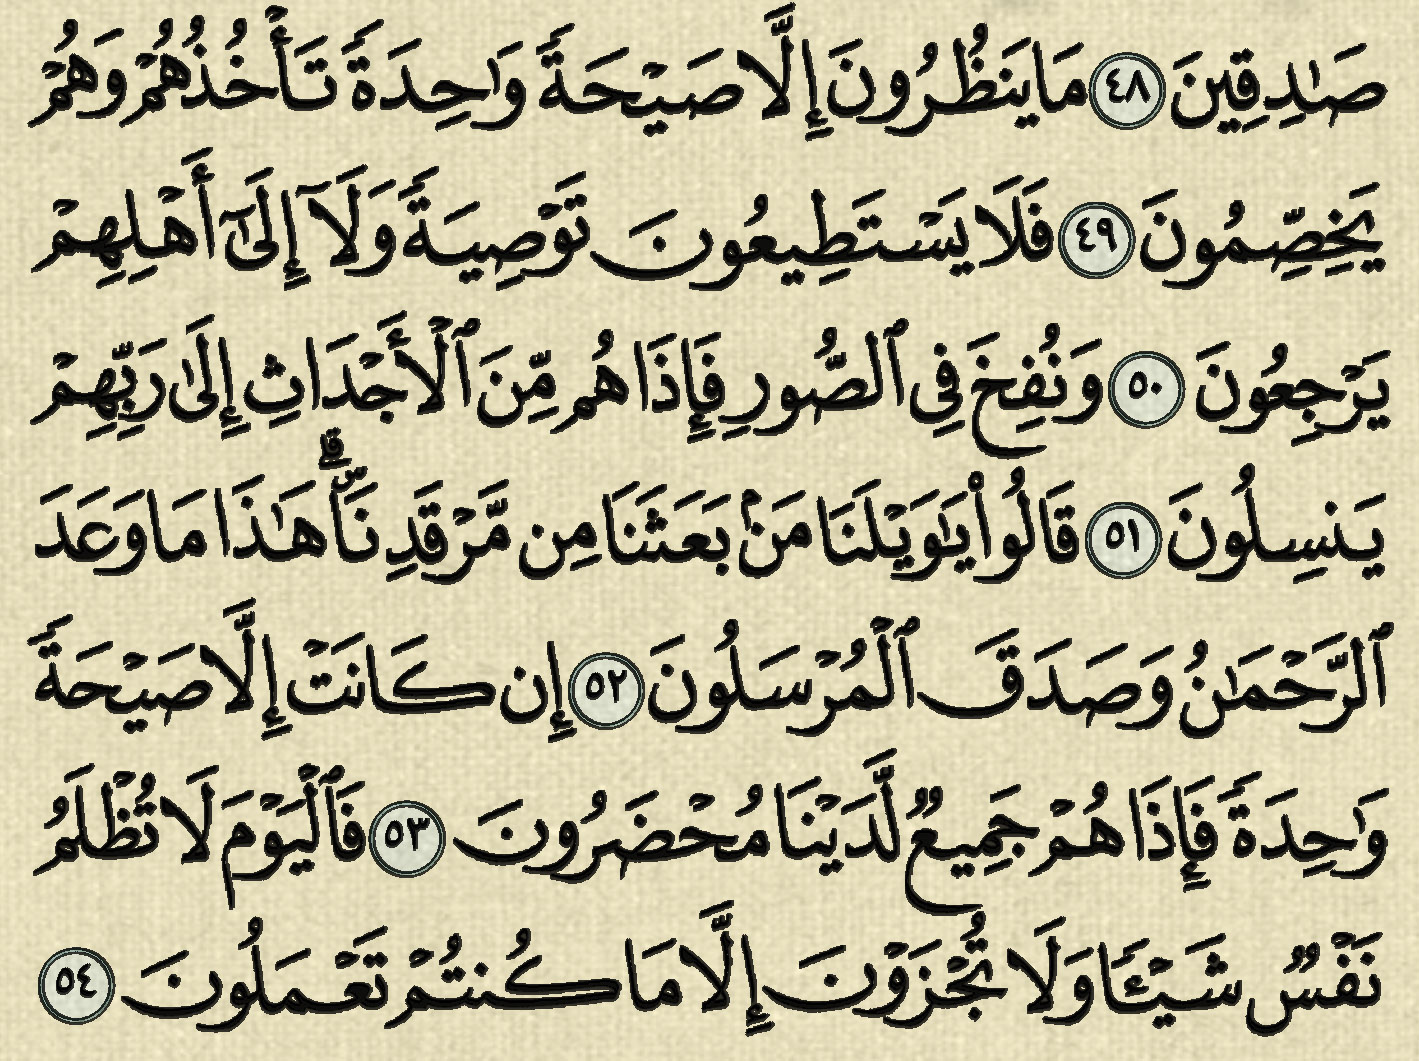 صَٰدِقِينَ ٤٨ مَا يَنظُرُونَ إِلَّا صَيْحَةً وَٰحِدَةً تَأْخُذُهُمْ وَهُمْ
يَخِصِّمُونَ ٤٩ فَلَا يَسْتَطِيعُونَ تَوْصِيَةً وَلَآ إِلَىٰٓ أَهْلِهِمْ
يَرْجِعُونَ ٥٠ وَنُفِخَ فِى ٱلصُّورِ فَإِذَا هُم مِّنَ ٱلْأَجْدَاثِ إِلَىٰ رَبِّهِمْ
يَنسِلُونَ ٥١ قَالُوا۟ يَٰوَيْلَنَا مَنۢ بَعَثَنَا مِن مَّرْقَدِنَاۜ ۗ هَٰذَا مَا وَعَدَ
ٱلرَّحْمَٰنُ وَصَدَقَ ٱلْمُرْسَلُونَ ٥٢ إِن كَانَتْ إِلَّا صَيْحَةً
وَٰحِدَةً فَإِذَا هُمْ جَمِيعٌ لَّدَيْنَا مُحْضَرُونَ ٥٣ فَٱلْيَوْمَ لَا تُظْلَمُ
نَفْسٌ شَيْـًٔا وَلَا تُجْزَوْنَ إِلَّا مَا كُنتُمْ تَعْمَلُونَ ٥٤